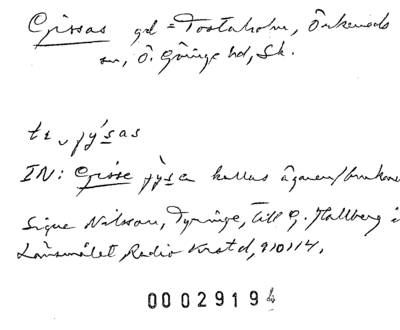 Gissas gd = Tostaholm, Örkeneds
sn, Ö. Göinge hd, Sk.
te ᴗ jy´sas
IN: Gisse jỳsa kallas ägaren/brukaren
Signe Nilsson, Tyringe, till G. Hallberg i
Länsmålet Radio Krstd, 910114.
00029194